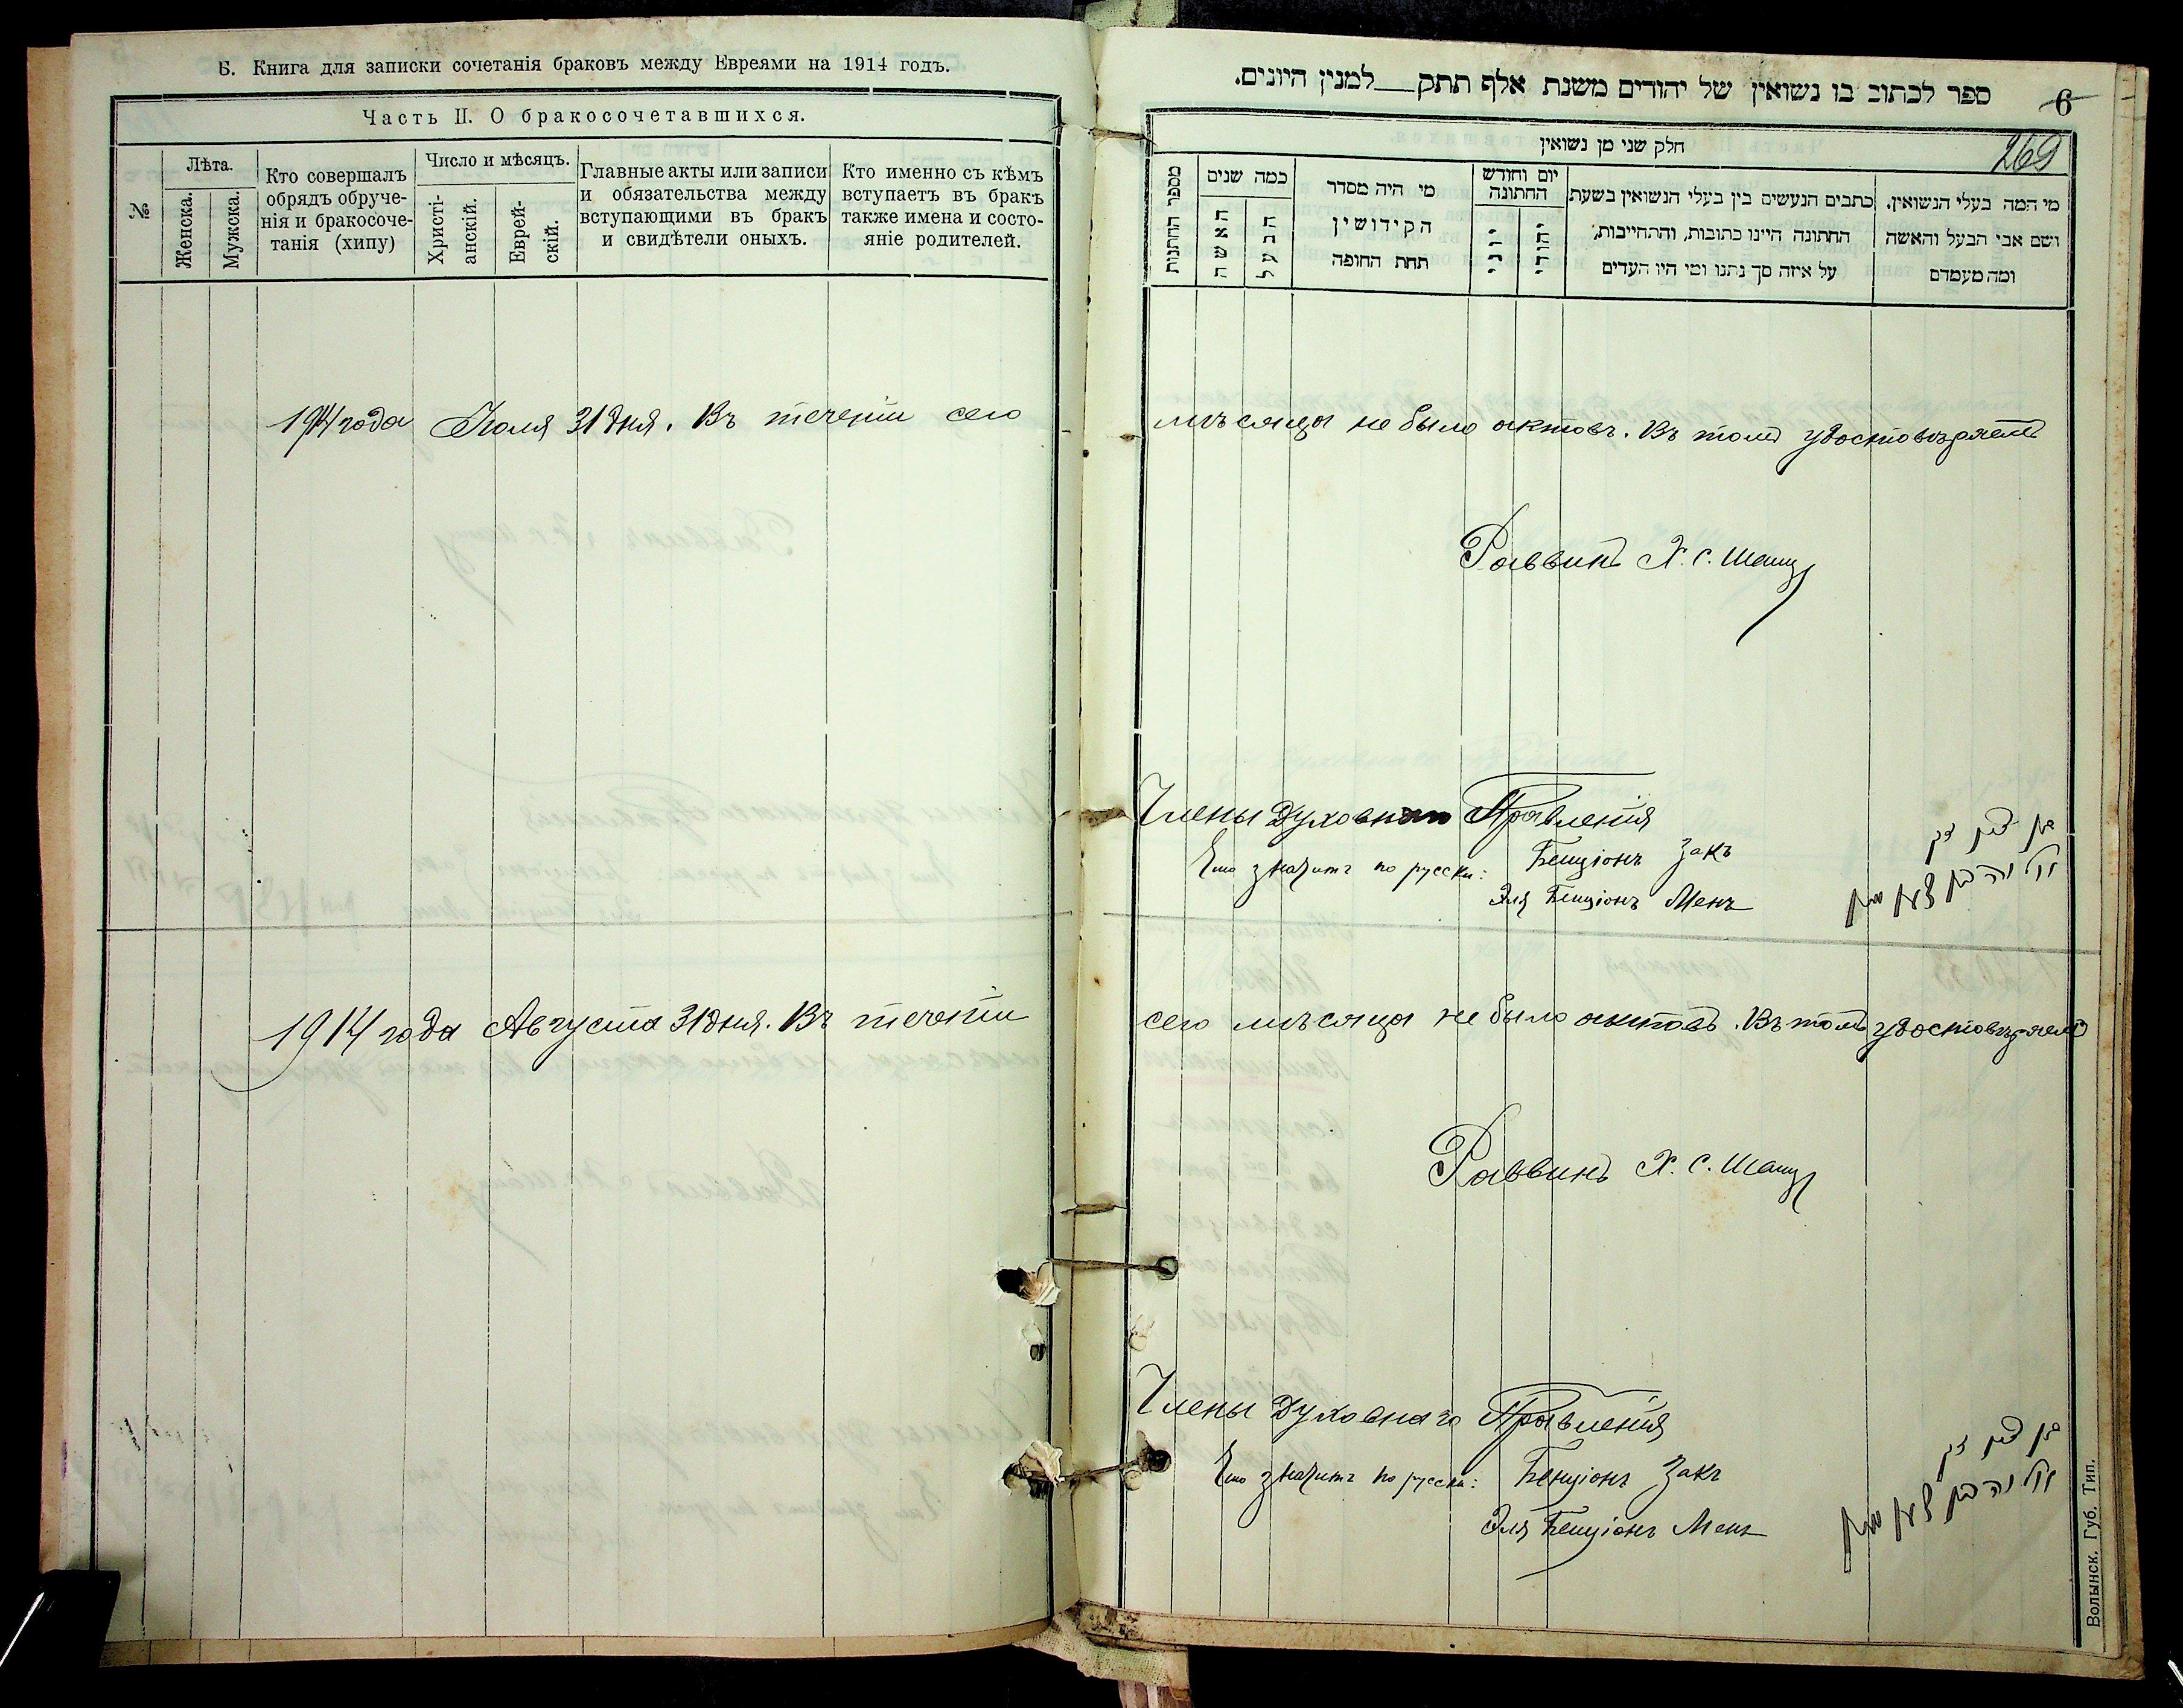 Б. Книга для записки сочетанія браковъ между Евреями на 1914 годъ.
Часть II. О бракосочетавшихся.
№
Лѣта.
Женска.
Мужска.
Кто совершалъ
обрядъ обруче-
нія и бракосоче-
танія (хипу)
Число и мѣсяцъ.
Христі-
анскій.
Еврей-
скій.
Главные акты или записи
и обязательства между
вступающими въ бракъ
и свидѣтели оныхъ.
Кто именно съ кѣмъ
вступаетъ въ бракъ
также имена и состо-
яніе родителей.
1914 года Іюля 31 дня. Въ теченіи сего
1914 года Августа 31 дня. Въ теченіи
ספר לכתוב בו נשואין של יהודים משנת אלף תתק___למנין היונים.
6
269
חלק שני מן נשואין
מי המה בעלי הנשואין.
ושם אבי הבעל והאשה
ומה מעמדם
כתבים הנעשים בין בעלי הנשואין בשעת
החתונה היינו כתובות, והתחייבות,
על איזה סך נתנו ומי היו העדים
יום וחודש
החתונה
יהודי
יוני
מי היה מסדר
הקידושין
תחת החופה
כמה שנים
הבעל
האשה
מספר החתנות
мѣсяца не было актовъ. Въ томъ удостовѣряемъ
Раввинъ Х. С. Шацъ
Члены Духовнаго Правленія
Что значитъ по русски: Бенціонъ Закъ
Эля Бенціонъ Менъ
сего мѣсяца не было актовъ. Въ томъ удостовѣряемъ
Раввинъ Х. С. Шацъ
Члены Духовнаго Правленія
Что значитъ по русски: Бенціонъ Закъ
Эля Бенціонъ Менъ
Волынск. Губ. Тип.